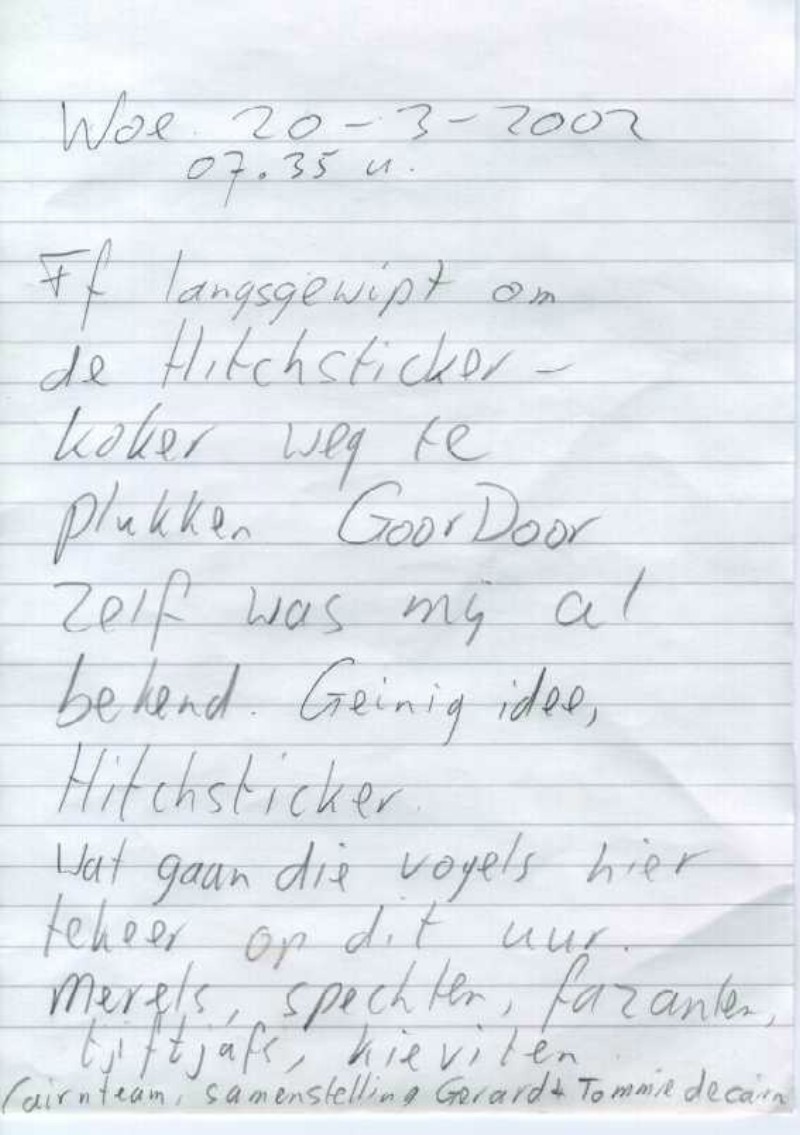 Woe. 20-3-2002
07.35 u.
Ff langsgewipt om
de Hitchsticker-
koker weg te
plukken GoorDoor
zelf was mij al
bekend. Geinig idee,
Hitchsticker.
Wat gaan die vogels hier
tekeer op dit uur.
Merels, spechten, fazanten,
tjiftjafs, kieviten
Cairnteam, samenstelling Gerard + Tommie de cairn